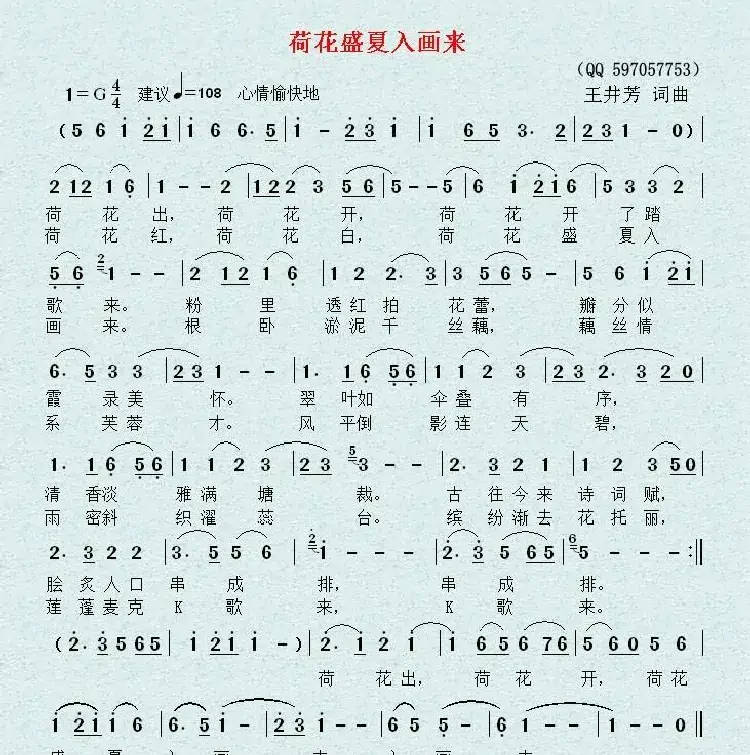 荷花盛夏入画来
(QQ 597057753)
1=G 4/4 建议♩=108 心情愉快地 王井芳 词曲
(5 6 i 2i|i 6 6. 5|i - 23 i|i 6 5 3. 2|1 - 0)|
2 12 1 6|1 - - 2|122 3 56|5 - - 5|6 i 2i6|5 3 3 3 2|
荷 花 出, 荷 花 开, 荷 花 开 了 踏
荷 花 红, 荷 花 白, 荷 花 盛 夏 入
56 2 1 - -|2 12 1 6|1 2 2. 3|3 565 -|5 6 i 2i|
歌 来。 粉 里 透 红 拍 花 蕾, 瓣 分 似
画 来。 根 卧 淤 泥 千 丝 藕, 藕 丝 情
6. 5 3 3|23 1 - -|1. 16 56|1 1 2 3|2. 3 3 20|
霞 录 美 怀。 翠 叶 如 伞 叠 有 序,
系 芙 蓉 才。 风 平 倒 影 连 天 碧,
1. 16 56|1 1 2 3|23 5 3 - -|2. 3 2 1|1 2 3 50|
清 香 淡 雅 满 塘 裁。 古 往 今 来 诗 词 赋,
雨 密 斜 织 濯 蕊 台。 缤 纷 渐 去 花 托 丽,
2. 3 2 2|3. 5 5 6|2 i - - -|2. 3 5 65|6 5 - - -:||
脍 炙 人 口 串 成 排, 串 成 排。
莲 蓬 麦 克 K 歌 来, K 歌 来。
(2. 3 565|i i 2i i|i - - -)|2. i 2 i|i 656 76|5 0 5 6|
荷 花 出, 荷 花 开, 荷 花